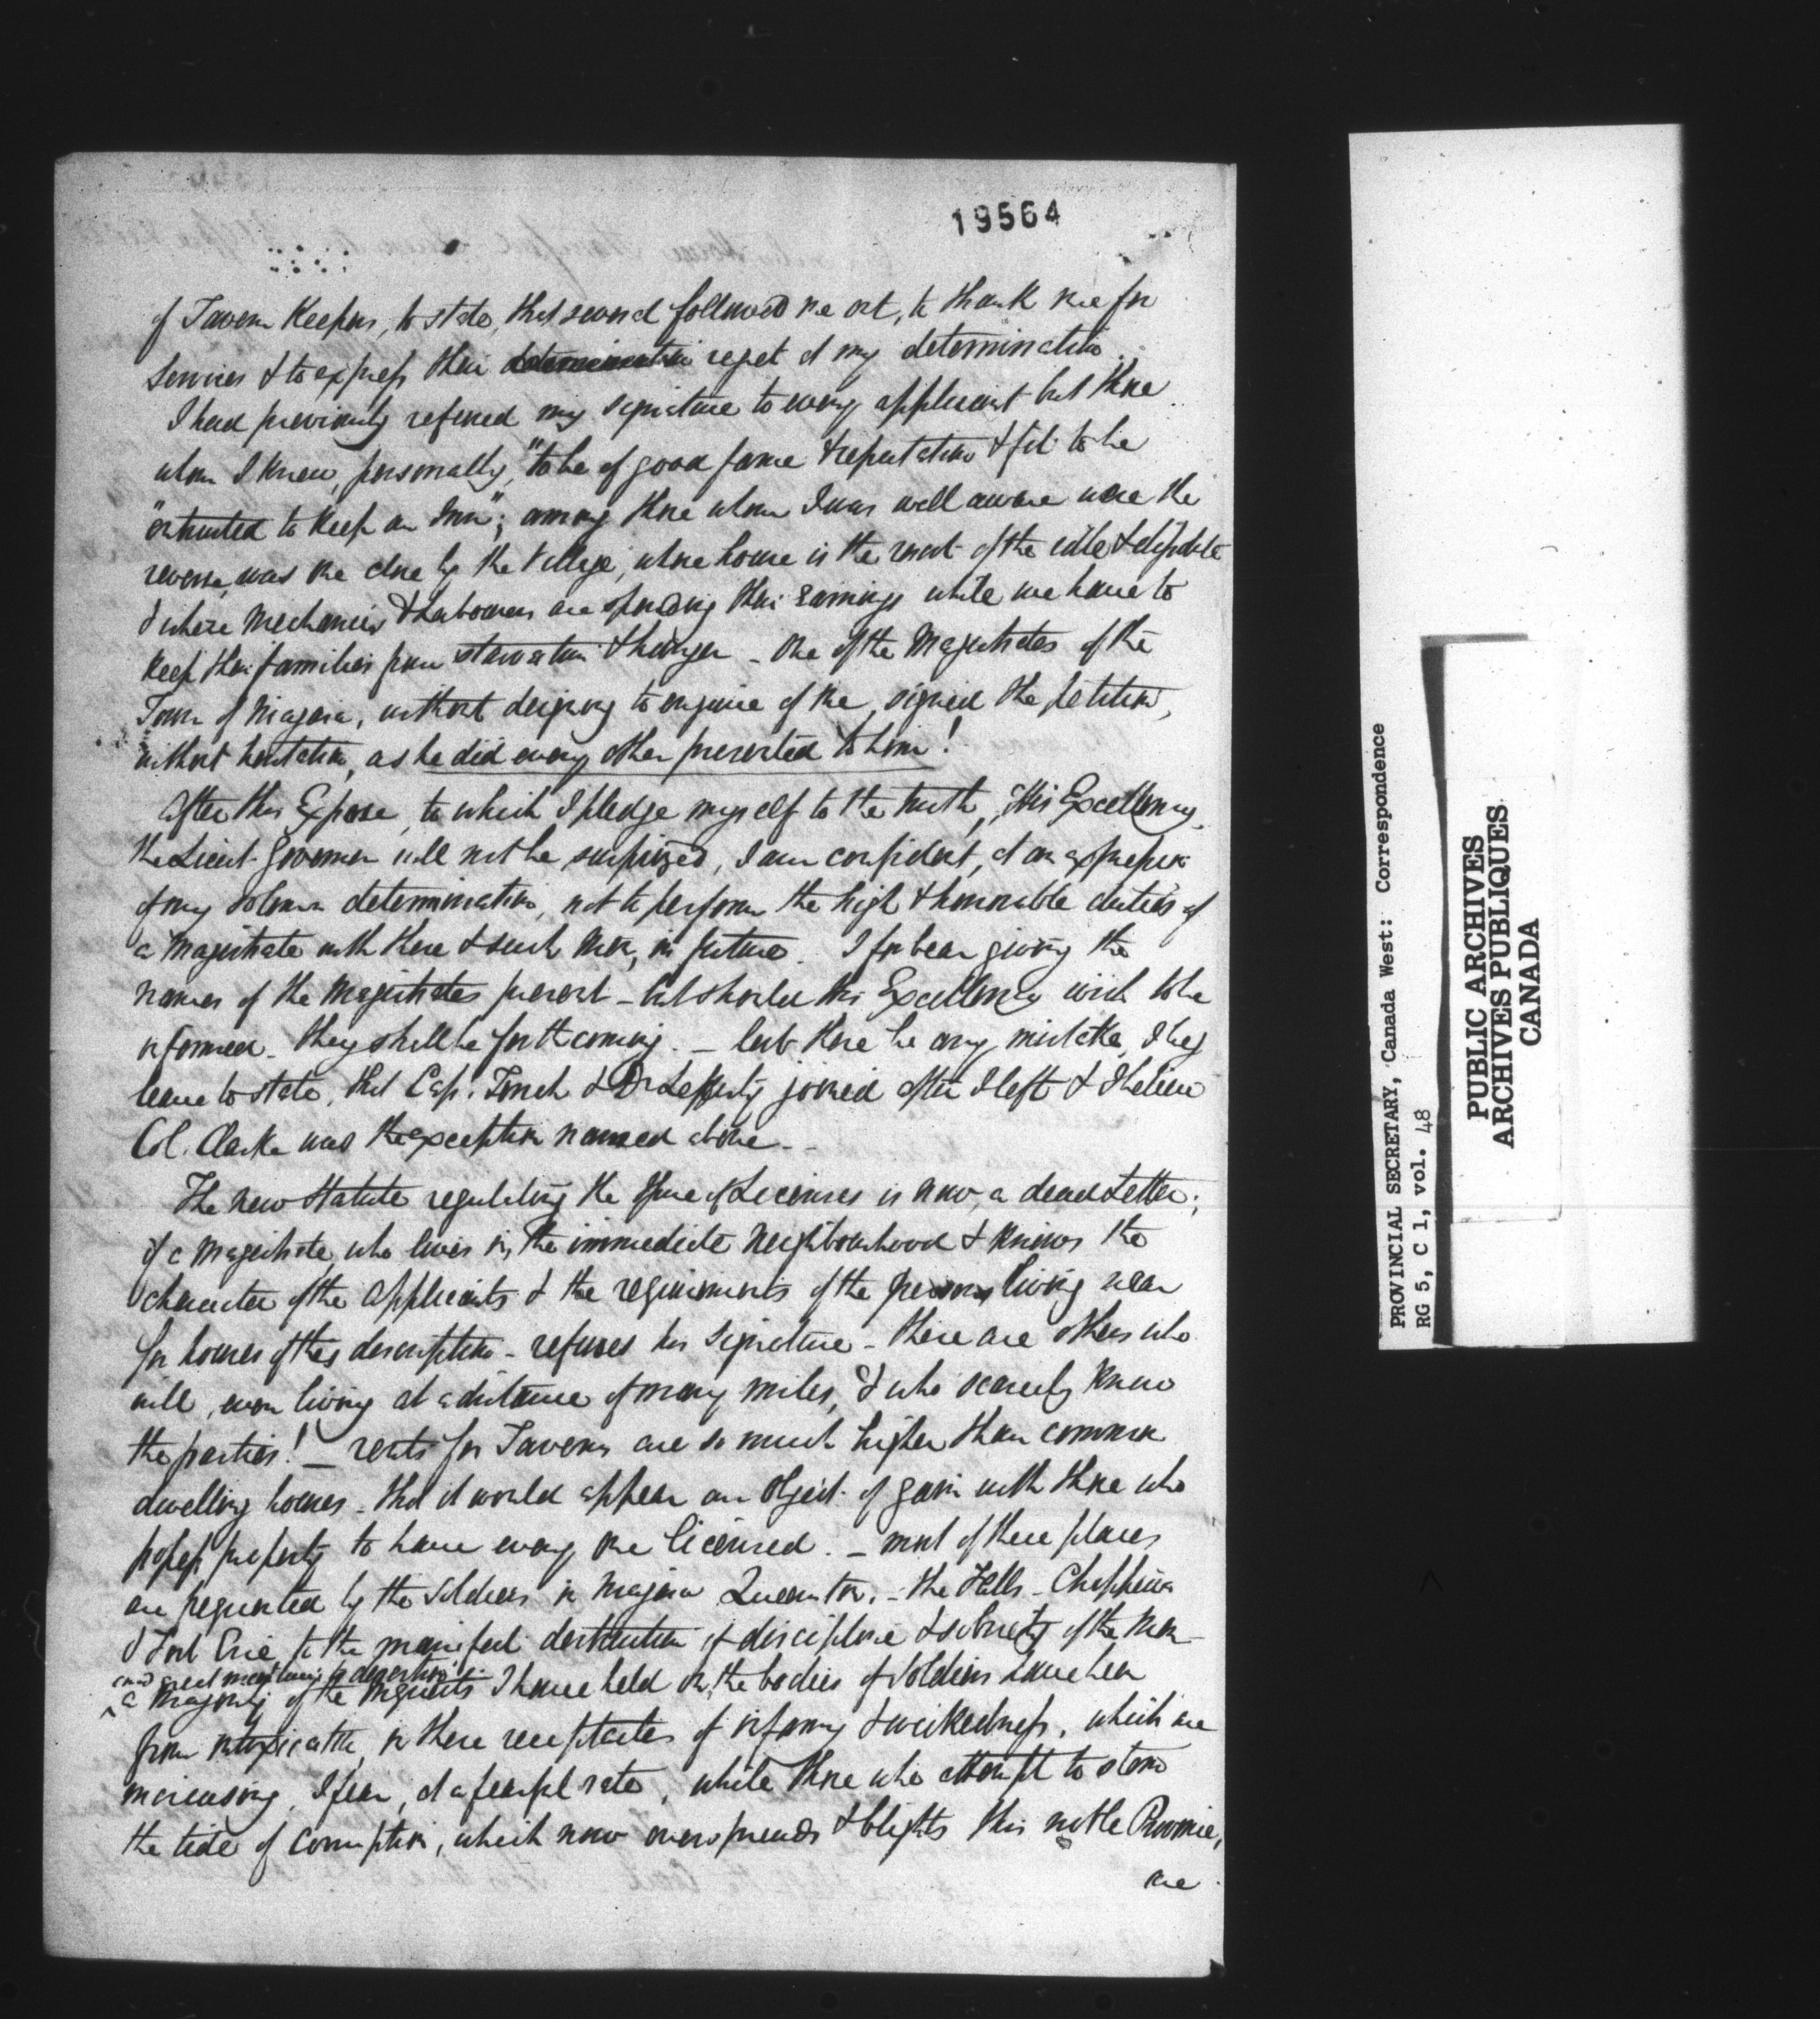 19564
of Tavern Keepers, to state, that several followed me out, to thank me for
services & to express their determination regret at my determination.
I had previously refused my signature to every applicant but those
whom I knew, personally, "to be of good fame & reputation & fit to be
"entrusted to keep an Inn"; among those whom I was well aware were the
reverse, was one close by the Village, whose house is the resort of the idle & dissolute
& where Mechanics & Labourers are spending their earnings while we have to
keep their families from starvation & hunger - One of the Magistrates of the
Town of Niagara, without deigning to enquire of me, signed the petition,
without hesitation, as he did every other presented to him!
After this Expose, to which I pledge myself to the truth, His Excellency
the Lieut. Governor will not be surprized, I am confident, at an expression
of my solemn determination, not to perform the high & honorable duties of
a Magistrate with these & such men, in future. I forbear giving the
names of the Magistrates present - but should His Excellency wish to be
informed - they shall be forthcoming. - lest there be any mistake, I beg
leave to state, that Cap. Tench & Dr Lefferty joined after I left & I believe
Col. Clarke was the exception named above. -
The new Statute regulating the issue of Licenses is now, a dead Letter;
if a Magistrate, who lives in the immediate neighbourhood & knows the
character of the applicants & the requirements of the persons living near
for houses of this description - refuses his signature - there are others who
will, even living at a distance of many miles, & who scarcely know
the parties! - rents for Taverns are so much higher than common
dwelling houses - that it would appear an object of gain with those who
possess property to have every one licensed. - most of these places
are frequented by the soldiers in Niagara Queenston, - the Falls - Chippewa
& Fort Erie, to the manifest destruction of discipline & sobriety of the men -
and great many [to] desertion.
a majority of the inquests I have held on the bodies of soldiers have been
from intoxication in these receptacles of infamy & wickedness, which are
increasing, I fear, at a fearful rate, while those who attempt to stem
the tide of corruption, which now overspreads & blights this noble Province,
are
PROVINCIAL SECRETARY, Canada West: Correspondence
RG 5, C 1, vol. 48
PUBLIC ARCHIVES
ARCHIVES PUBLIQUES
CANADA